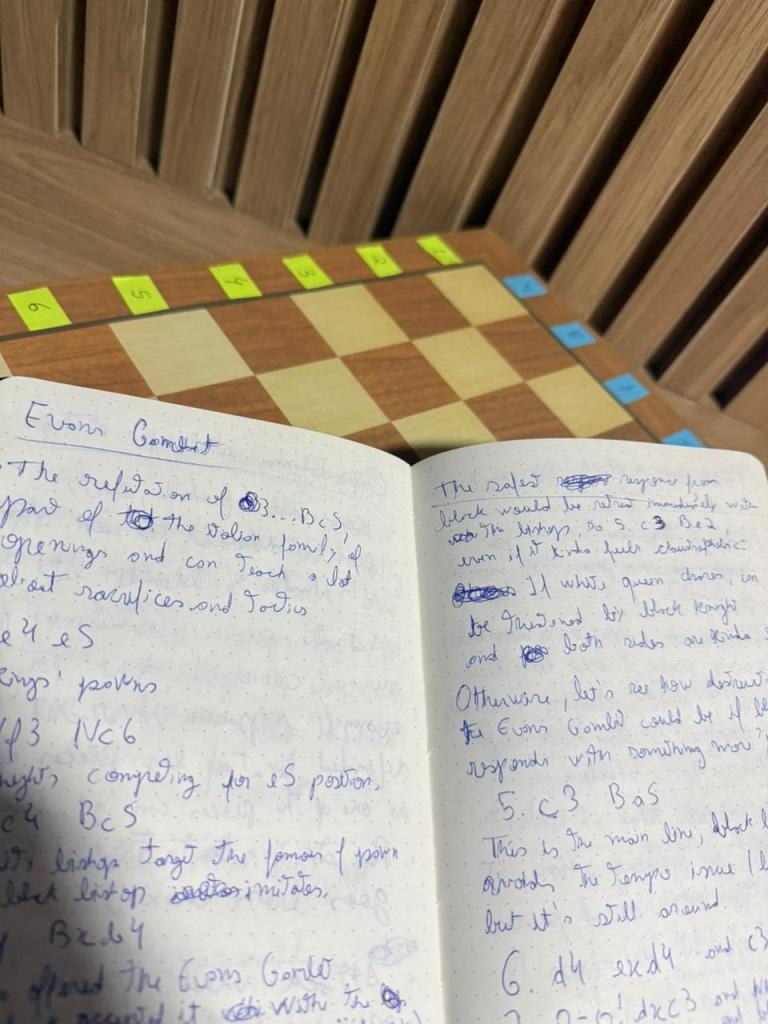 6 5 4 3 2 1
Evans Gambit
The refutation of 3...Bc5,
part of the Italian family of
openings and can teach a lot
about sacrifices and tactics
e4 e5
kings' pawns
Nf3 Nc6
knights competing for e5 position,
c4 Bc5
bishops target the famous f pawn
black bishop imitates.
Bxb4
offered the Evans Gambit
accepted it with the
The safest response from
black would be retreat immediately with
the bishop, so 5. c3 Be7,
even if it kinda feels claustrophobic.
If white queen chases, can
be threatened by black knight
and both sides are kinda
Otherwise, let's see how
the Evans Gambit could be if
responds with something more
5. c3 Ba5
This is the main line, black
avoids the tempo issue
but it's still around.
6. d4 exd4 and c3
7. 0-0! dxc3 and